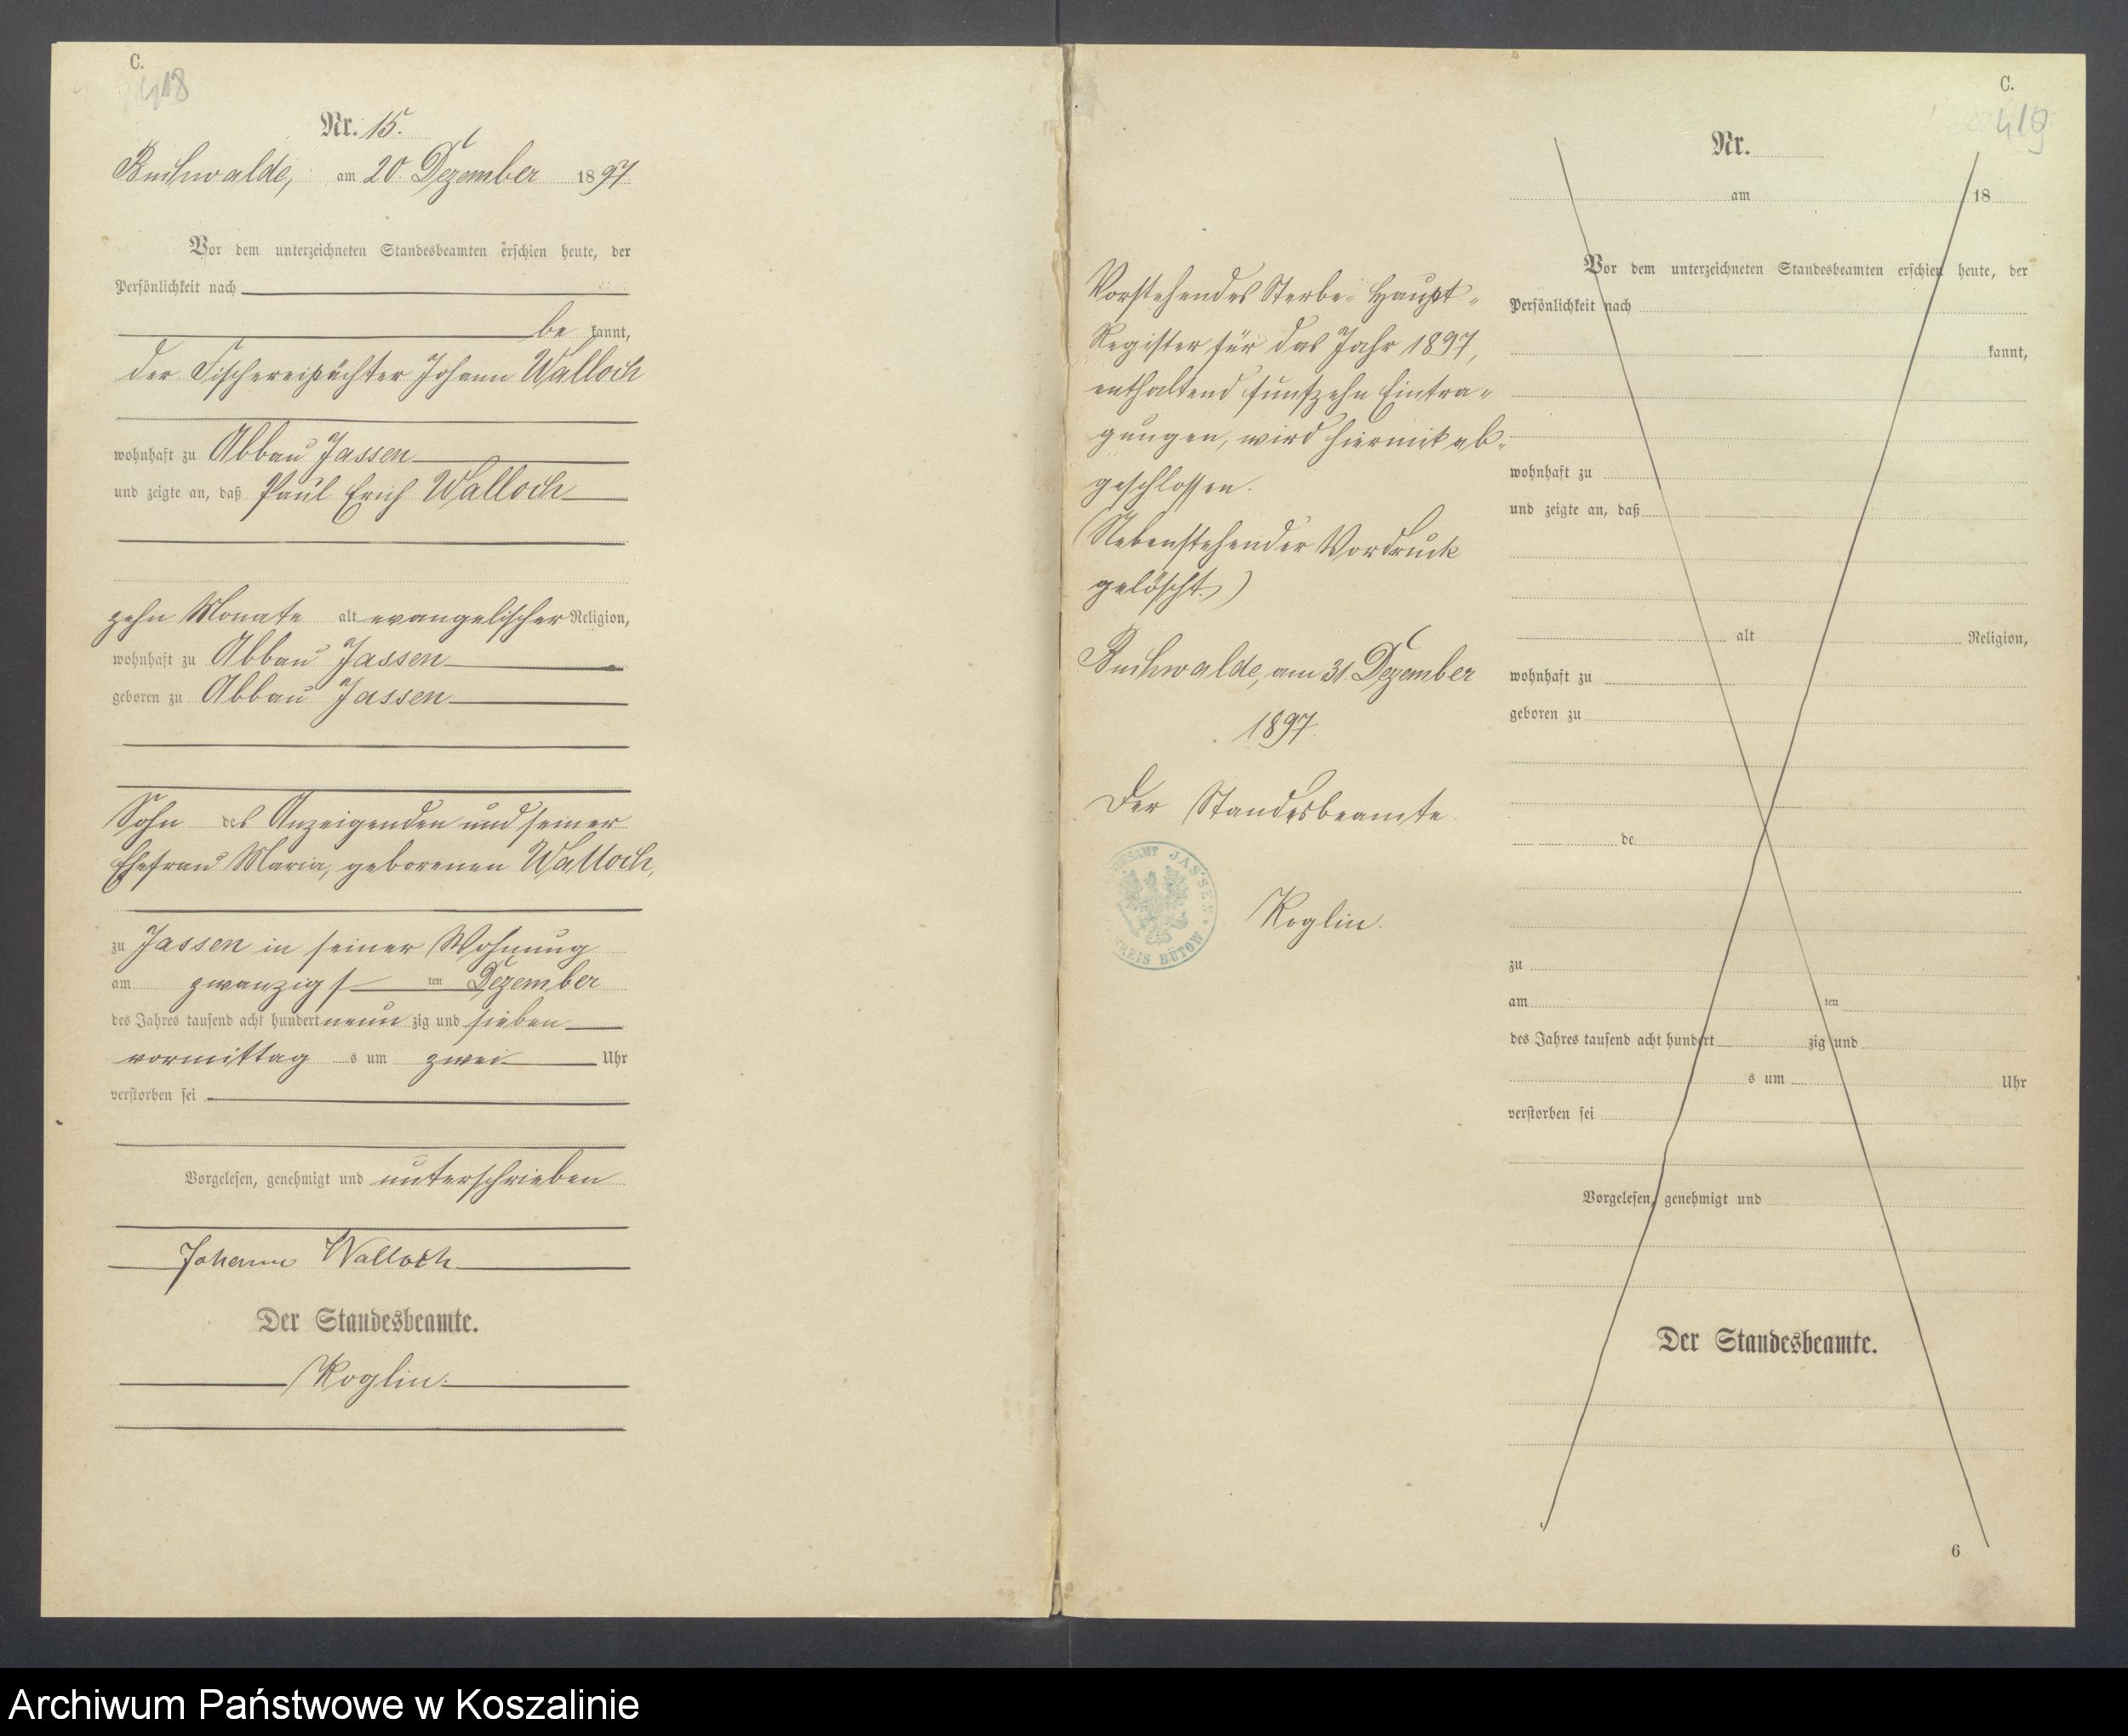 C.
418
Nr. 15.
Buchwalde, am 20. Dezember 1897
Vor dem unterzeichneten Standesbeamten erschien heute, der
Persönlichkeit nach
be kannt,
der Fischereipächter Johann Walloch
wohnhaft zu Abbau Jassen
und zeigte an, daß Paul Erich Walloch
zehn Monate alt evangelischer Religion,
wohnhaft zu Abbau Jassen
geboren zu Abbau Jassen
Sohn des Anzeigenden und seiner
Ehefrau Maria, geborenen Walloch,
zu Jassen in seiner Wohnung
am zwanzigst ten Dezember
des Jahres tausend acht hundert neun zig und sieben
vormittag s um zwei Uhr
verstorben sei
Vorgelesen, genehmigt und unterschrieben
Johann Walloch
Der Standesbeamte.
Roglin.
Vorstehendes Sterbe-Haupt-
Register für das Jahr 1897,
enthaltend fünfzehn Eintra-
gungen, wird hiermit ab-
geschlossen.
(Nebenstehender Vordruck
gelöscht.)
Buchwalde, am 31. Dezember
1897.
Der Standesbeamte
JASSEN
KREIS BÜTOW
Roglin.
C.
419
Nr.
am 18
Vor dem unterzeichneten Standesbeamten erschien heute, der
Persönlichkeit nach
kannt,
wohnhaft zu
und zeigte an, daß
alt Religion,
wohnhaft zu
geboren zu
de
zu
am ten
des Jahres tausend acht hundert zig und
s um Uhr
verstorben sei
Vorgelesen, genehmigt und
Der Standesbeamte.
6
Archiwum Państwowe w Koszalinie